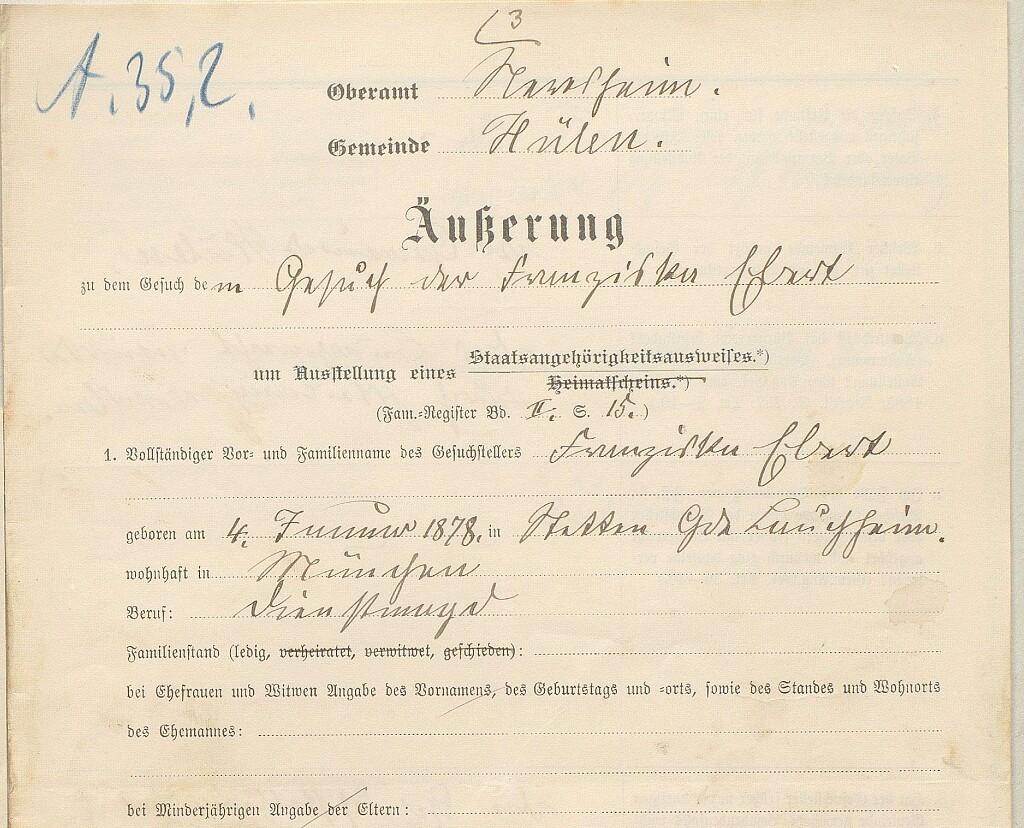 (3
A. 35,2.
Oberamt Neresheim.
Gemeinde Hülen.
Äußerung
zu dem Gesuch dem Gesuch der Franziska Ebert
um Ausstellung eines Staatsangehörigkeitsausweises.*)
Heimatscheins.*)
(Fam.-Register Bd. II. S. 15.)
1. Vollständiger Vor- und Familienname des Gesuchstellers Franziska Ebert
geboren am 4. Januar 1878. in Stetten Gde Lauchheim.
wohnhaft in München
Beruf: Dienstmagd
Familienstand (ledig, verheiratet, verwitwet, geschieden):
bei Ehefrauen und Witwen Angabe des Vornamens, des Geburtstags und -orts, sowie des Standes und Wohnorts
des Ehemannes:
bei Minderjährigen Angabe der Eltern: